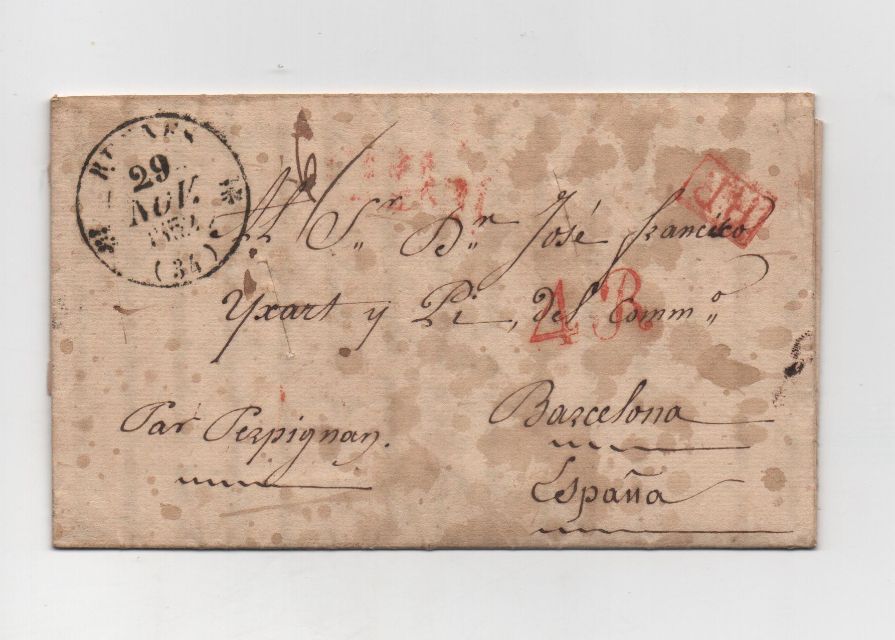 RENNES
29
NOV.
1832
(34)
Al Sr. Dn. José Francisco
P.P.
Yxart y Pi, del Commo.
4 R
Par Perpignan.
Barcelona
España